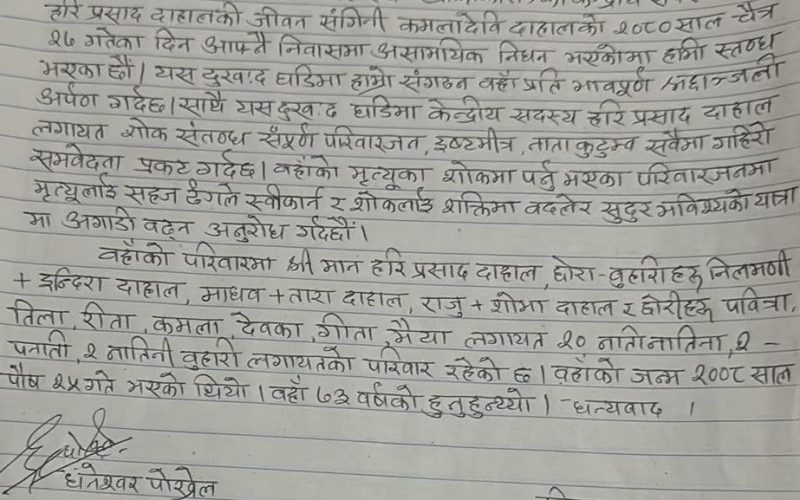 हरि प्रसाद दाहालकी जीवन संगिनी कमलादेवि दाहालको २०८० साल चैत्र
२७ गतेका दिन आफ्नै निवासमा असामयिक निधन भएकोमा हामी स्तब्ध
भएका छौं। यस दुखःद घडिमा हाम्रो संगठन वहाँ प्रति भावपूर्ण श्रद्धाञ्जली
अर्पण गर्दछ। साथै यस दुखःद घडिमा केन्द्रीय सदस्य हरि प्रसाद दाहाल
लगायत शोक संतब्ध संपूर्ण परिवारजन, इष्टमीत्र, नाता कुटुम्व सवैमा गहिरो
समवेदना प्रकट गर्दछ। वहाँको मृत्यूका शोकमा पर्नु भएका परिवारजनमा
मृत्यूलाई सहज ढंगले स्वीकार्न र शोकलाई शक्तिमा वदलेर सुदुर भविश्यको यात्रा
मा अगाडी वढ्न अनुरोध गर्दछौं।
वहाँको परिवारमा श्री मान हरि प्रसाद दाहाल, छोरा-वुहारीहरू निलमणी
+ इन्दिरा दाहाल, माधव + तारा दाहाल, राजु + शोभा दाहाल र छोरीहरू पवित्रा,
तिला, रीता, कमला, देवका, गीता, मैया लगायत २० नातीनातिना, २ -
पनाती, २ नातिनी वुहारी लगायतको परिवार रहेको छ। वहाँको जन्म २००८ साल
पौष २५ गते भएको थियो। वहाँ ७३ वर्षको हुनुहुन्थ्यो। -धन्यवाद ।
धनेश्वर पोखेल